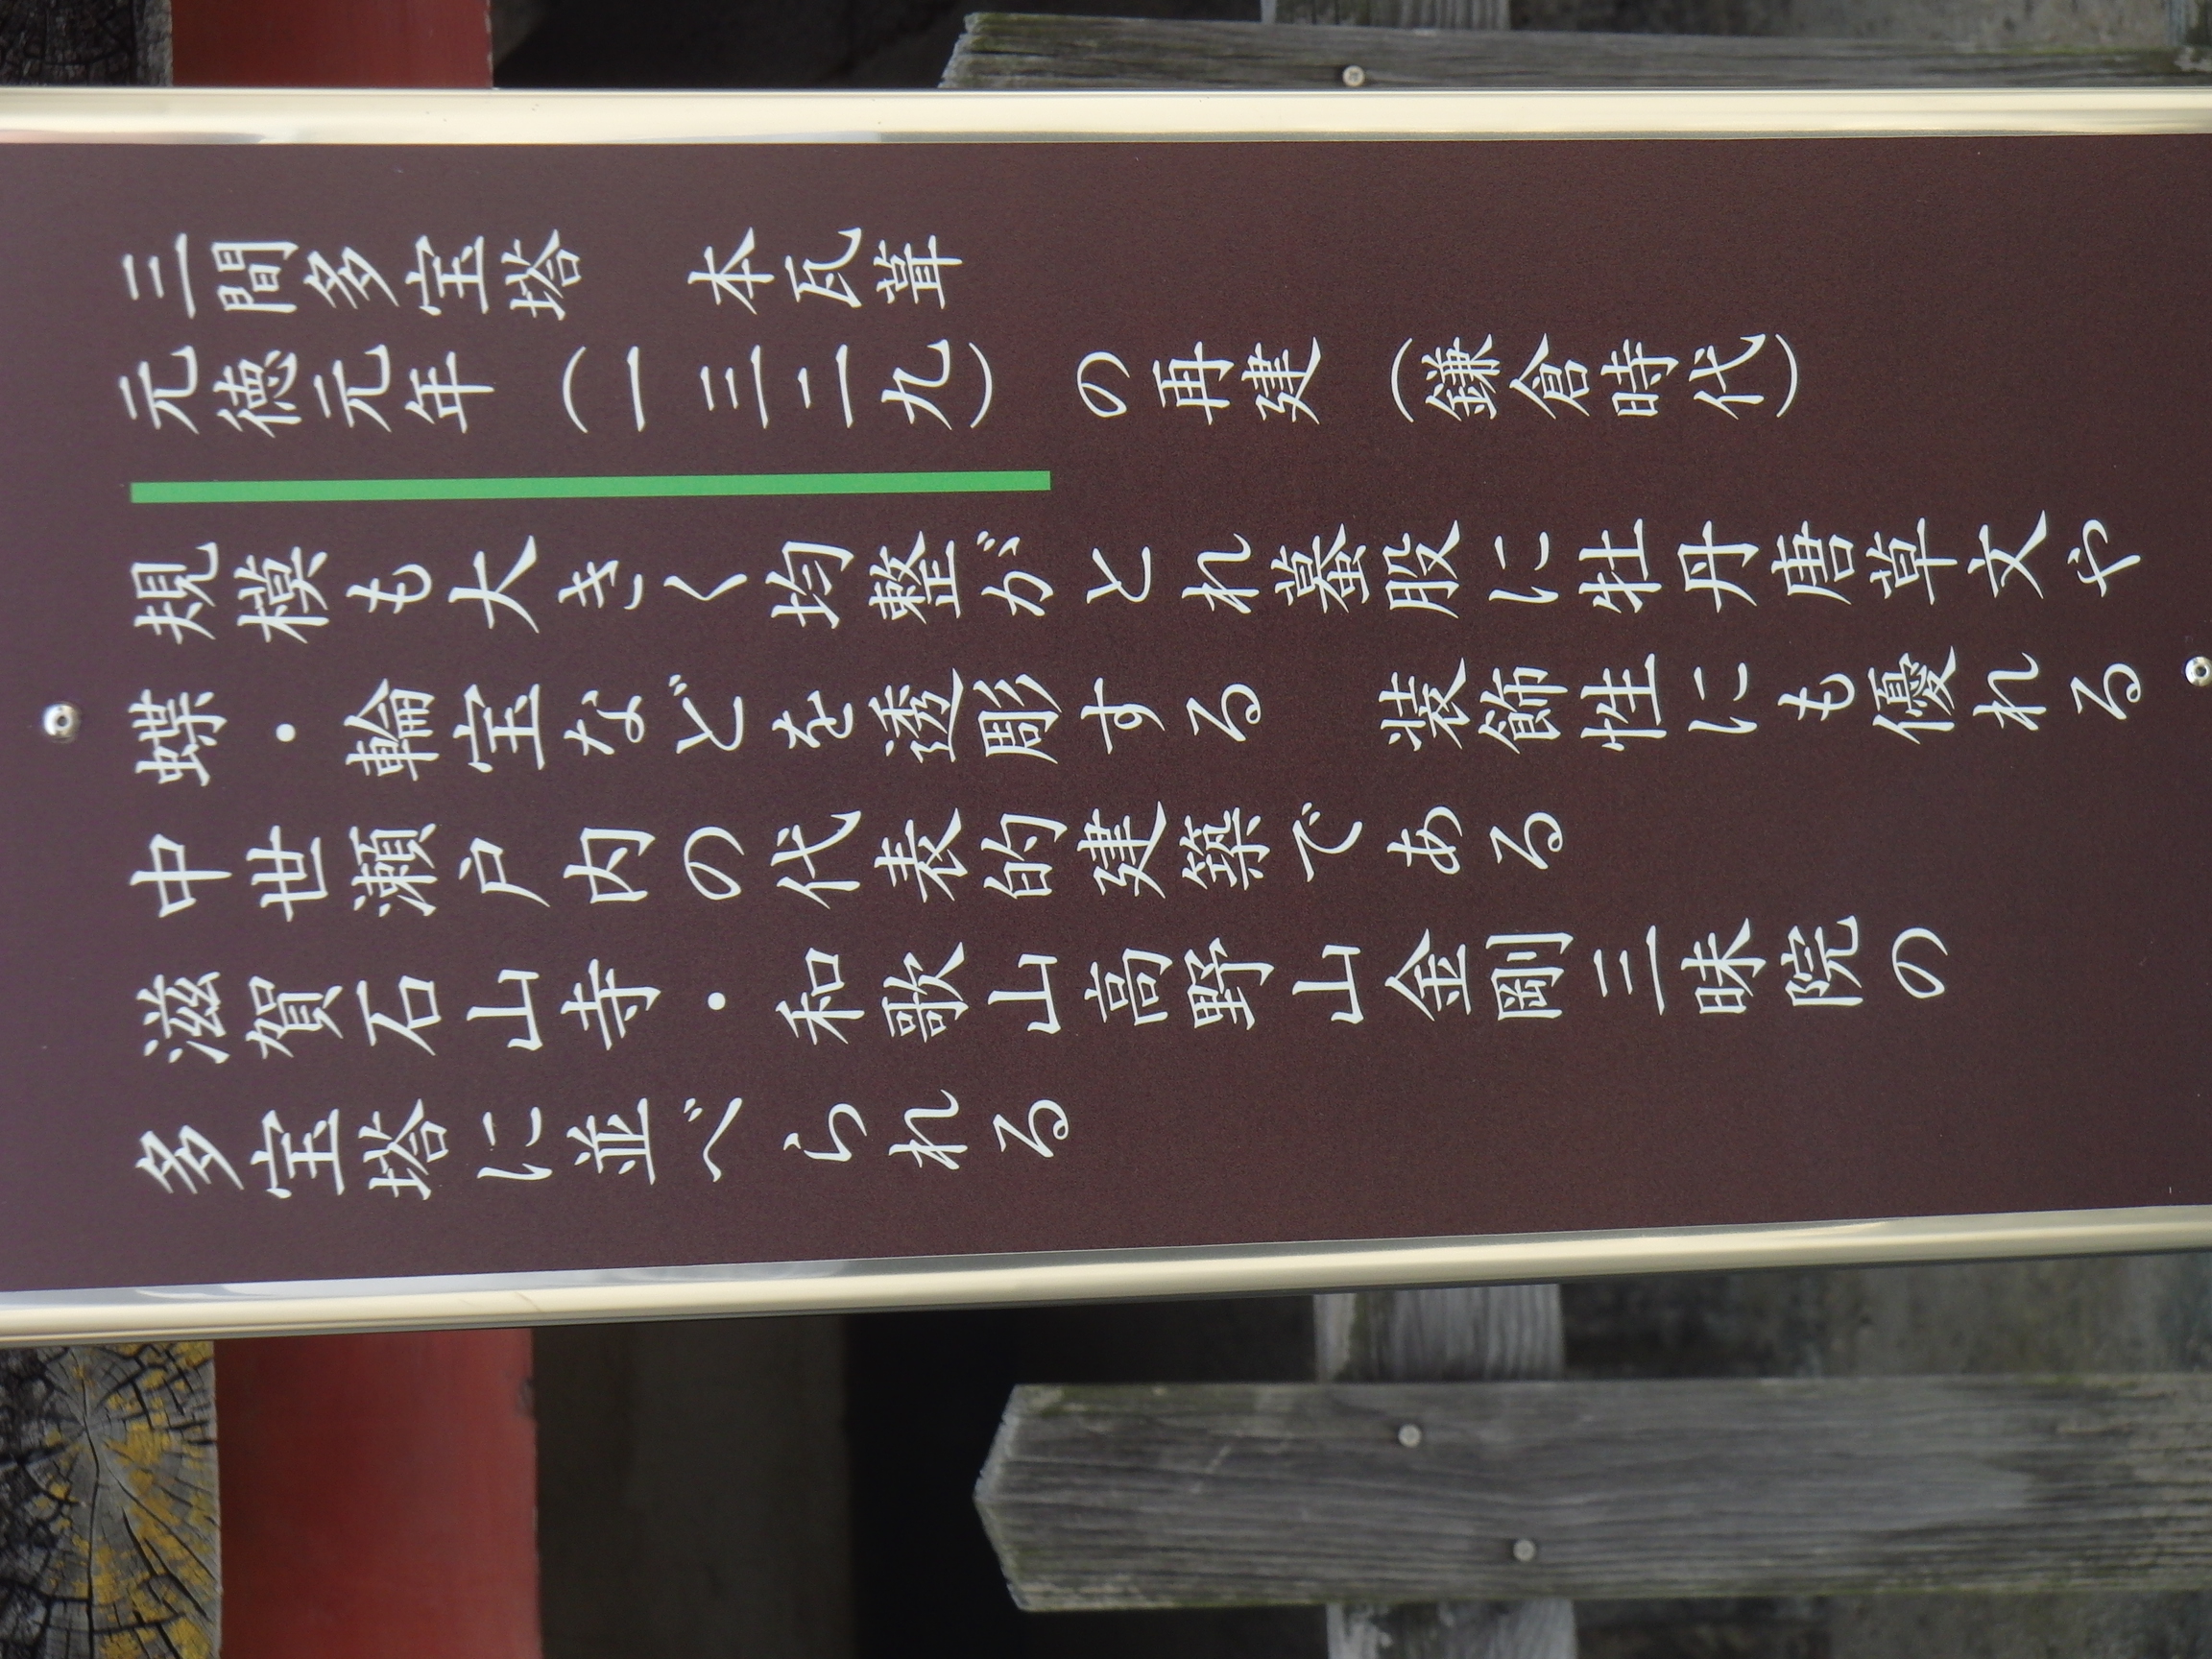 三間多宝塔　本瓦葺
元徳元年（一三二九）の再建（鎌倉時代）
規模も大きく均整がとれ蟇股に牡丹唐草文や
蝶・輪宝などを透彫する　装飾性にも優れる
中世瀬戸内の代表的建築である
滋賀石山寺・和歌山高野山金剛三昧院の
多宝塔に並べられる